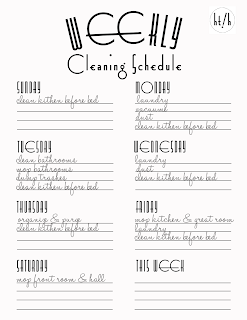 WEEKLY
Cleaning Schedule
SUNDAY
clean kithen before bed
MONDAY
laundry
vacuum
dust
clean kithen before bed
TUESDAY
clean bathrooms
mop bathrooms
dump trashes
clean kithen before bed
WEDNESDAY
laundry
dust
clean kithen before bed
THURSDAY
organize & purge
clean kithen before bed
FRIDAY
mop kitchen & great room
laundry
clean kithen before bed
SATURDAY
mop front room & hall
THIS WEEK